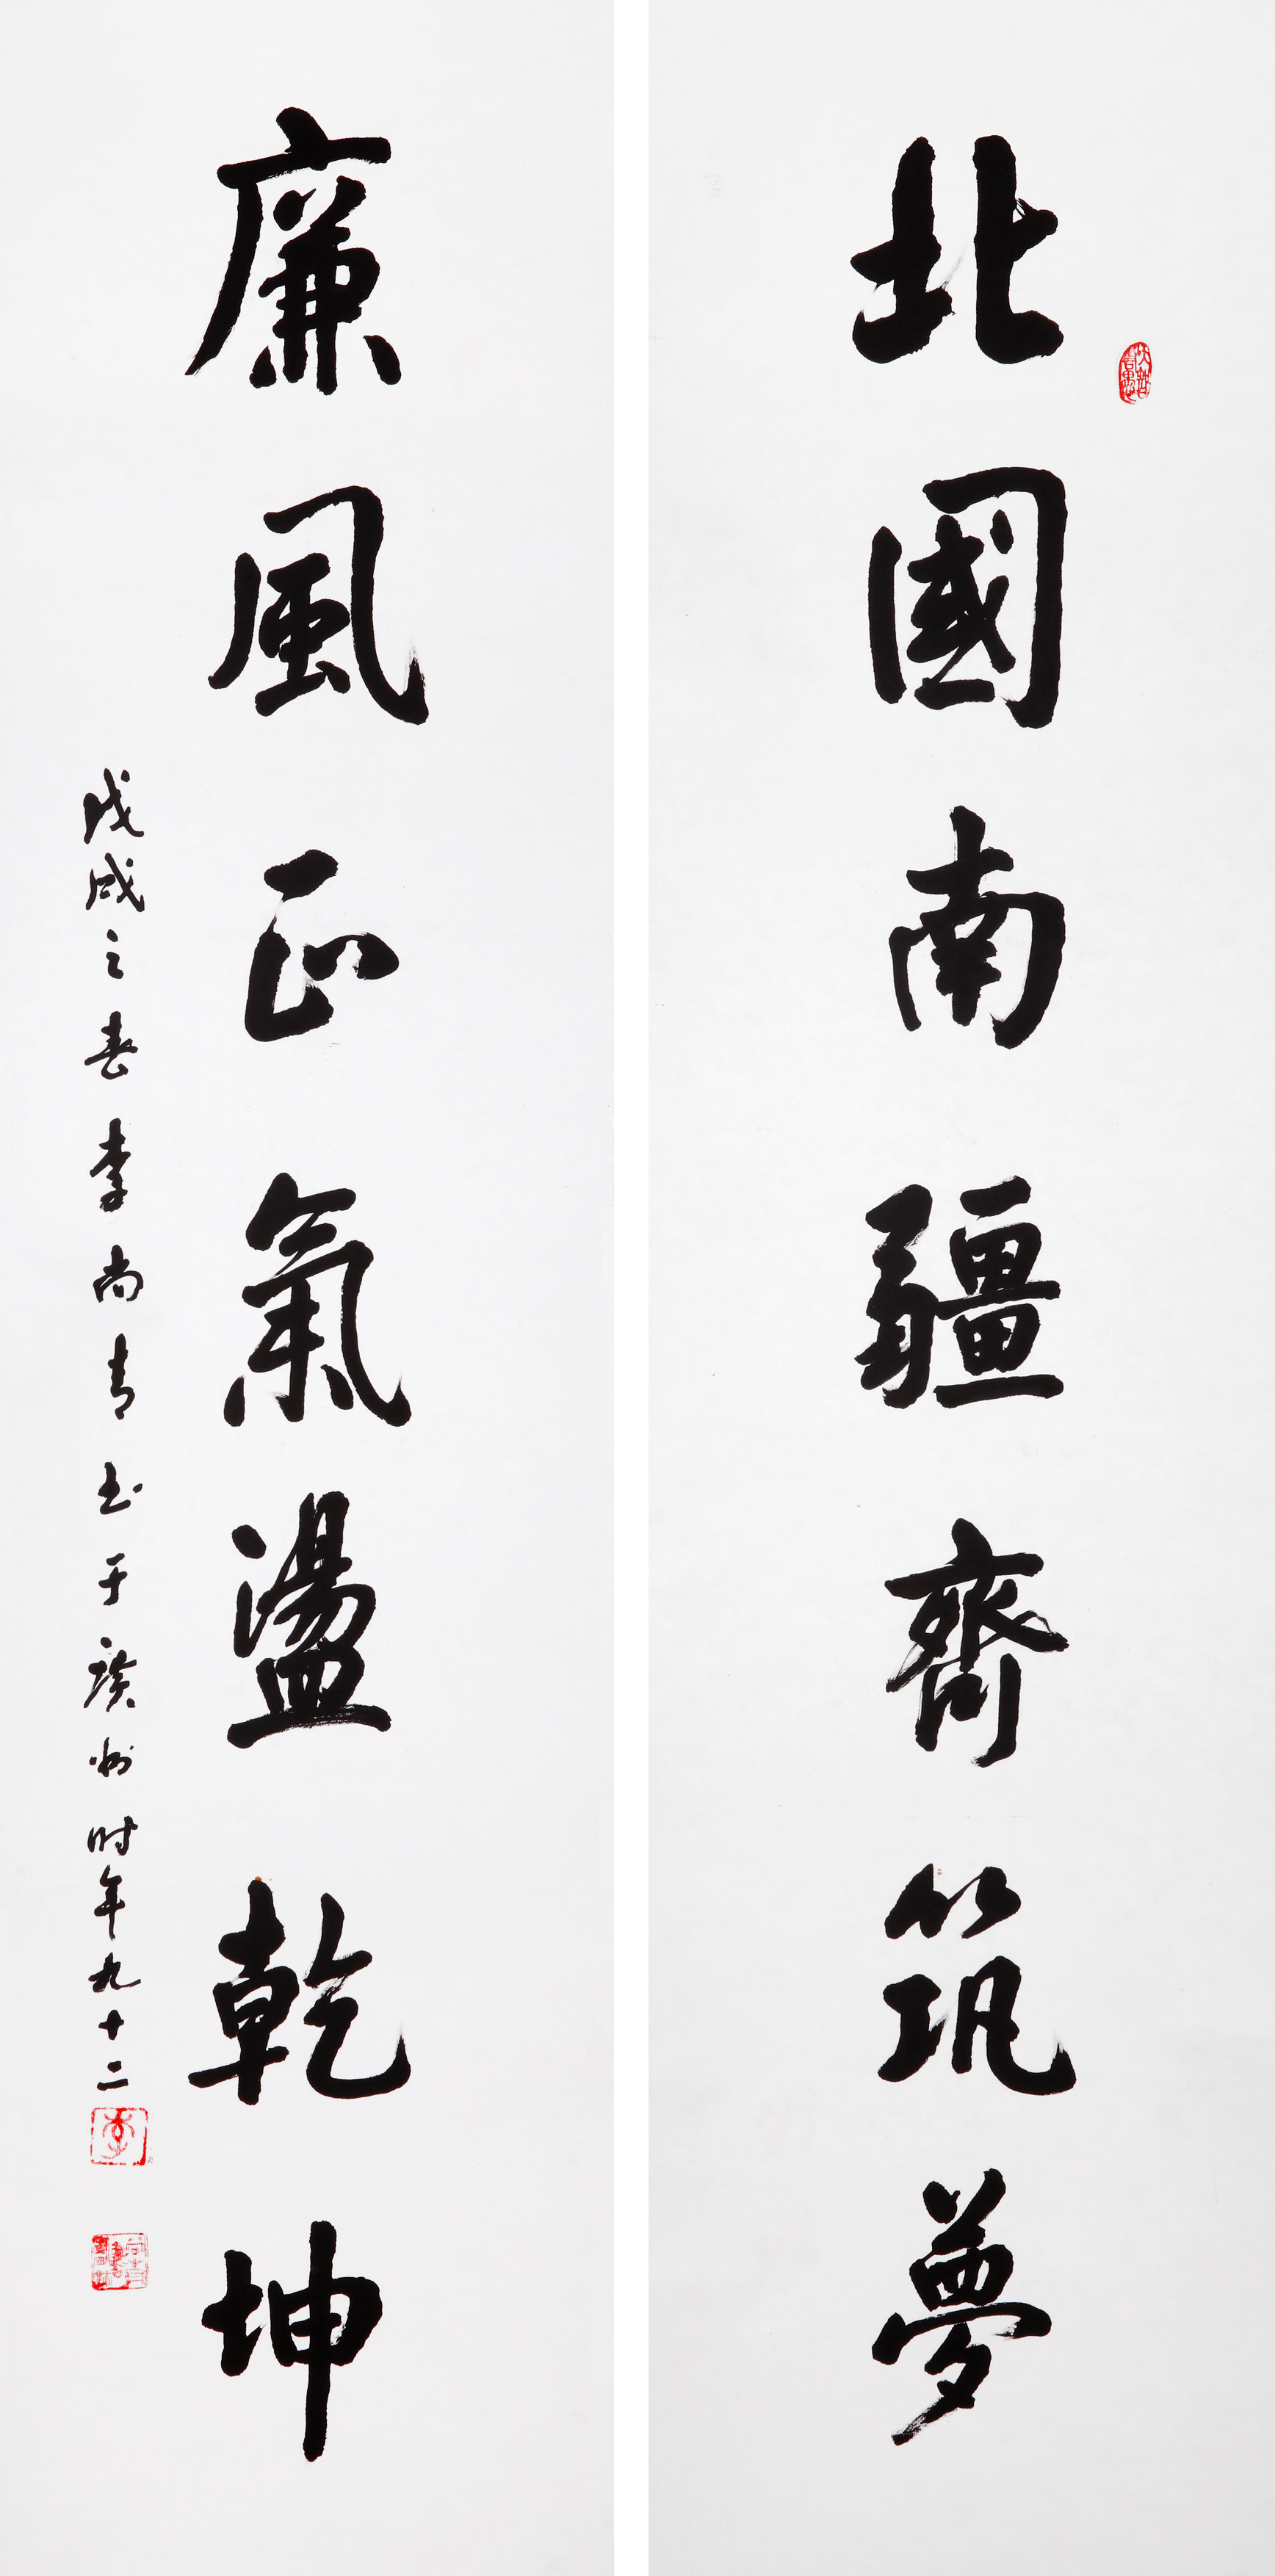 北國南疆齊筑夢
廉風正氣盪乾坤
戊戌之春李尚青书于广州时年九十二
李